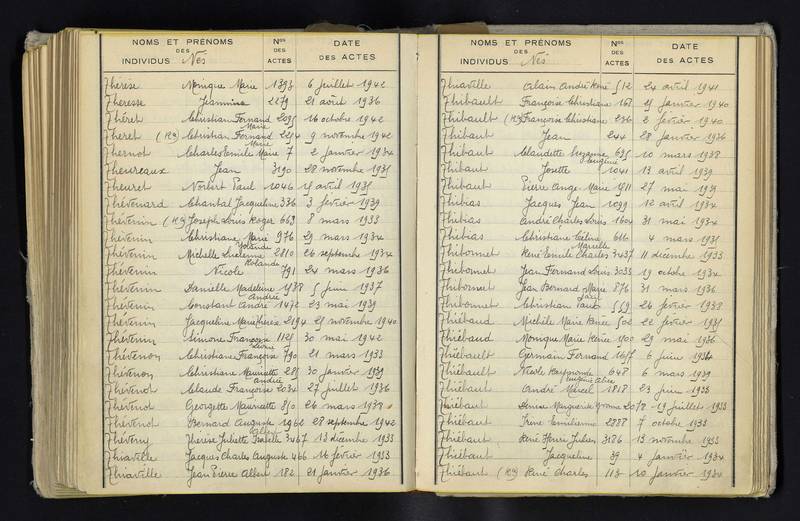 NOMS ET PRÉNOMS DES INDIVIDUS Nés
Nos DES ACTES
DATE DES ACTES
Thérèse Monique Marie 1393 6 juillet 1942
Theresse Jeannine 2279 21 août 1936
Théret Christian Fernand 2095 16 octobre 1942
Marie
Theret (Ron) Christian Fernand 2294 9 novembre 1942
Marie
Thernot Charles Emile Marie 7 2 janvier 1934
Theureaux Jean 3190 28 novembre 1935
Theuret Norbert Paul 1046 15 avril 1935
Thévenard Chantal Jacqueline 336 3 février 1939
Thévenin (Ron) Joseph Louis Roger 663 8 mars 1933
Thévenin Christiane Marie 976 29 mars 1934
Yolande
Thévenin Michelle Lucienne 2810 26 septembre 1934
Rolande
Thévenin Nicole 791 24 mars 1936
Thévenin Danielle Madeleine 1738 5 juin 1937
Andrée
Thévenin Constant André 1472 23 mai 1939
Thévenin Jacqueline Marie Thérèse 2194 25 novembre 1940
Thévenin Simone Françoise 1125 30 mai 1942
Thévenon Christiane Françoise 790 21 mars 1933
Thévenon Christiane Henriette 285 30 janvier 1939
Andrée
Thévenot Claude Françoise 2034 27 juillet 1936
Thévenot Georgette Henriette 850 26 mars 1938
Thévenot Bernard Auguste 1962 28 septembre 1942
Théveny Thérèse Juliette Isabelle 3467 13 décembre 1933
Thiaville Jacques Charles Auguste 466 16 février 1933
Thiaville Jean Pierre Albert 182 21 janvier 1936
NOMS ET PRÉNOMS DES INDIVIDUS Nés
Nos DES ACTES
DATE DES ACTES
Thiaville Alain André René 512 24 avril 1941
Thibault Françoise Christiane 167 25 janvier 1940
Thibault (Ron) Françoise Christiane 236 2 février 1940
Thibaut Jean 244 28 janvier 1936
Thibaut Claudette Suzanne 635 10 mars 1938
Eugénie
Thibaut Josette 1041 13 avril 1939
Thibaut Pierre Ange Marie 1511 27 mai 1939
Thibias Jacques Jean 1099 12 avril 1934
Thibias André Charles Louis 1604 31 mai 1934
Thibias Christiane Céline 616 4 mars 1935
Marcelle
Thibonnet René Emile Charles 3437 11 décembre 1933
Thibonnet Jean Fernand Louis 3033 19 octobre 1934
Thibonnet Jean Bernard Marie 876 31 mars 1936
Thibonnet Christian Paul 559 26 février 1938
Thiébaud Michèle Marie Renée 502 22 février 1935
Thiébaud Monique Marie Renée 1400 29 mai 1936
Thiébault Germain Fernand 1657 6 juin 1934
Thiébault Nicole Raymonde 648 6 mars 1939
Eugénie Alice
Thiébaut André Marcel 1818 23 juin 1933
Thiébaut Denise Marguerite Yvonne 2078 19 juillet 1933
Thiébaut Irène Emilienne 2838 7 octobre 1933
Thiébaut René Henri Julien 3186 13 novembre 1933
Thiébaut Jacqueline 39 4 janvier 1934
Thiébaut (Ron) René Charles 113 10 janvier 1934